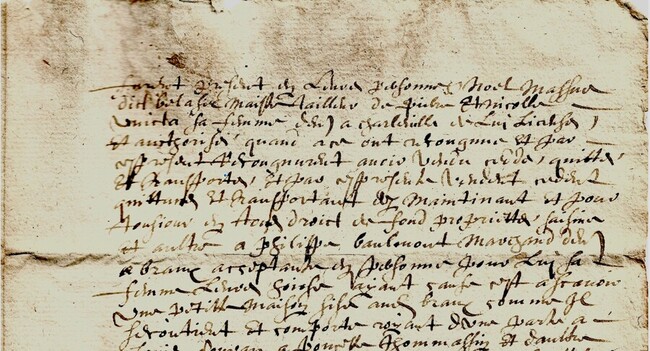 furent present en leurs personne Noel Massue
dict belasse Maistre tailleur de pierre et nicolle
sa femme dem a charleville de luy licensee
et authorisee quand a ce ont recongnue et par
ces present recongnurent avoir vendu ceddé, quitté,
et transporté, et par ces presente vendent ceddent
quittent et transportant des Maintinant et pour
tousiour en tous droict de fond proprietté, saisine
et aultre a philippe baulmont Marchand dem
a braux acceptante en personne pour luy sa
femme leurs hoirs ayant cause c'est ascavoir
une petitte Maison size aud braux comme Il
se contient et comporte royant d'une parte a
a poncelle thommassin et d'aultre